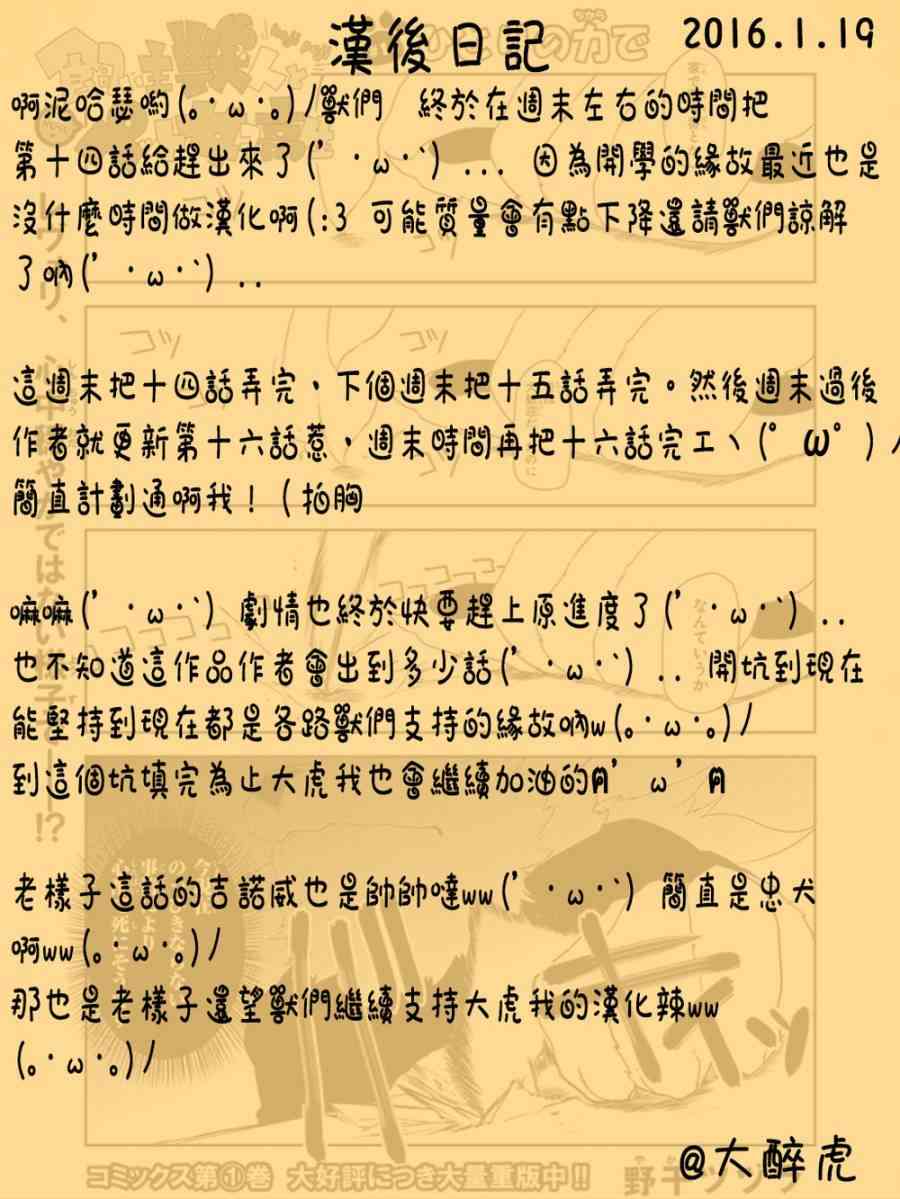 漢後日記
2016.1.19
啊泥哈瑟喲(｡･ω･｡)ﾉ獸們　終於在週末左右的時間把
第十四話給趕出來了(′・ω・`) ... 因為開學的緣故最近也是
沒什麼時間做漢化啊(:3 可能質量會有點下降還請獸們諒解
了吶(′・ω・`) ..
這週末把十四話弄完，下個週末把十五話弄完。然後週末過後
作者就更新第十六話惹，週末時間再把十六話完工ヽ(ﾟωﾟ)ﾉ
簡直計劃通啊我！（拍胸
嘛嘛(′・ω・`) 劇情也終於快要趕上原進度了(′・ω・`) ..
也不知道這作品作者會出到多少話(′・ω・`) .. 開坑到現在
能堅持到現在都是各路獸們支持的緣故吶w(｡･ω･｡)/
到這個坑填完為止大虎我也會繼續加油的ฅ'ω'ฅ
老樣子這話的吉諾威也是帥帥噠ww(′・ω・`) 簡直是忠犬
啊ww(｡･ω･｡)/
那也是老樣子還望獸們繼續支持大虎我的漢化辣ww
(｡･ω･｡)/
@大醉虎
コミックス第①巻 大好評につき大量重版中!!